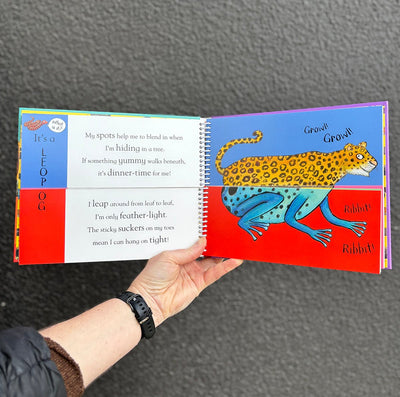 What is it?
It's a
LEOP
OG
My spots help me to blend in when
I'm hiding in a tree.
If something yummy walks beneath,
it's dinner-time for me!
I leap around from leaf to leaf,
I'm only feather-light.
The sticky suckers on my toes
mean I can hang on tight!
Growl!
Growl!
Ribbit!
Ribbit!